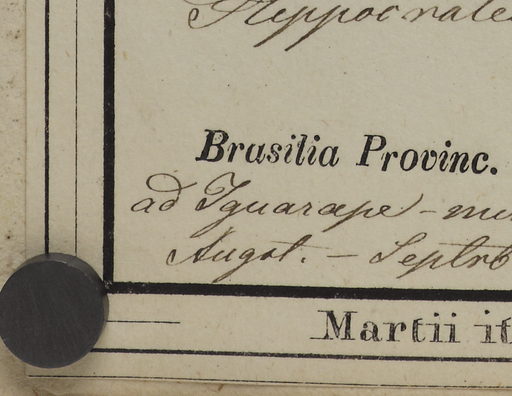 Hippocratea
Brasilia Provinc.
ad Iguarape-
Augst. - Septrb
Martii it